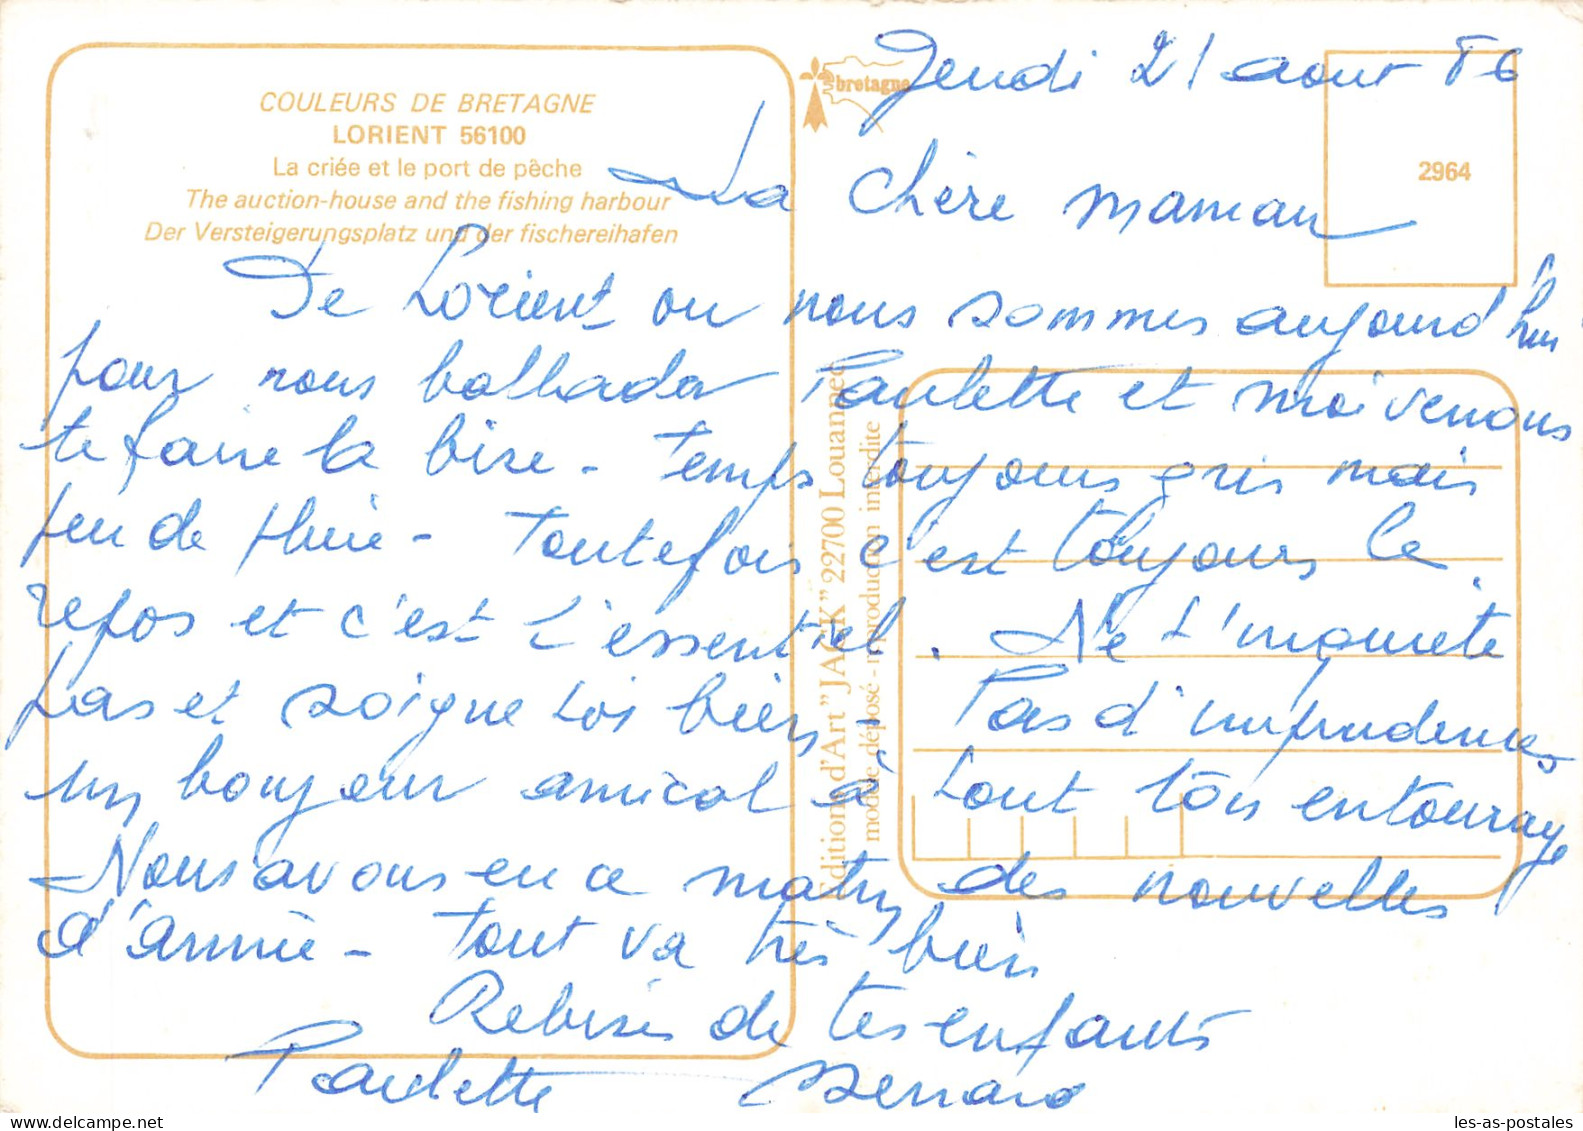 COULEURS DE BRETAGNE
LORIENT 56100
La criée et le port de pêche
The auction-house and the fishing harbour
Der Versteigerungsplatz und der fischereihafen
bretagne
2964
Editions d'Art "JACK" 22700 Louannec
modèle déposé - reproduction interdite
Jeudi 21 aout 86
La chère maman
De Lorient ou nous sommes aujourd'hui
pour nous ballader Paulette et moi venons
te faire la bise - Temps toujours gris mais
peu de pluie - Toutefois c'est toujours le
repos et c'est l'essentiel. Ne t'inquiète
pas et soigne toi bien - Pas d'imprudences
un bonjour amical à tout ton entourage
Nous avons eu ce matin des nouvelles
d'Annie - Tout va très bien
Rebises de tes enfants
Paulette Bernard
les-as-postales